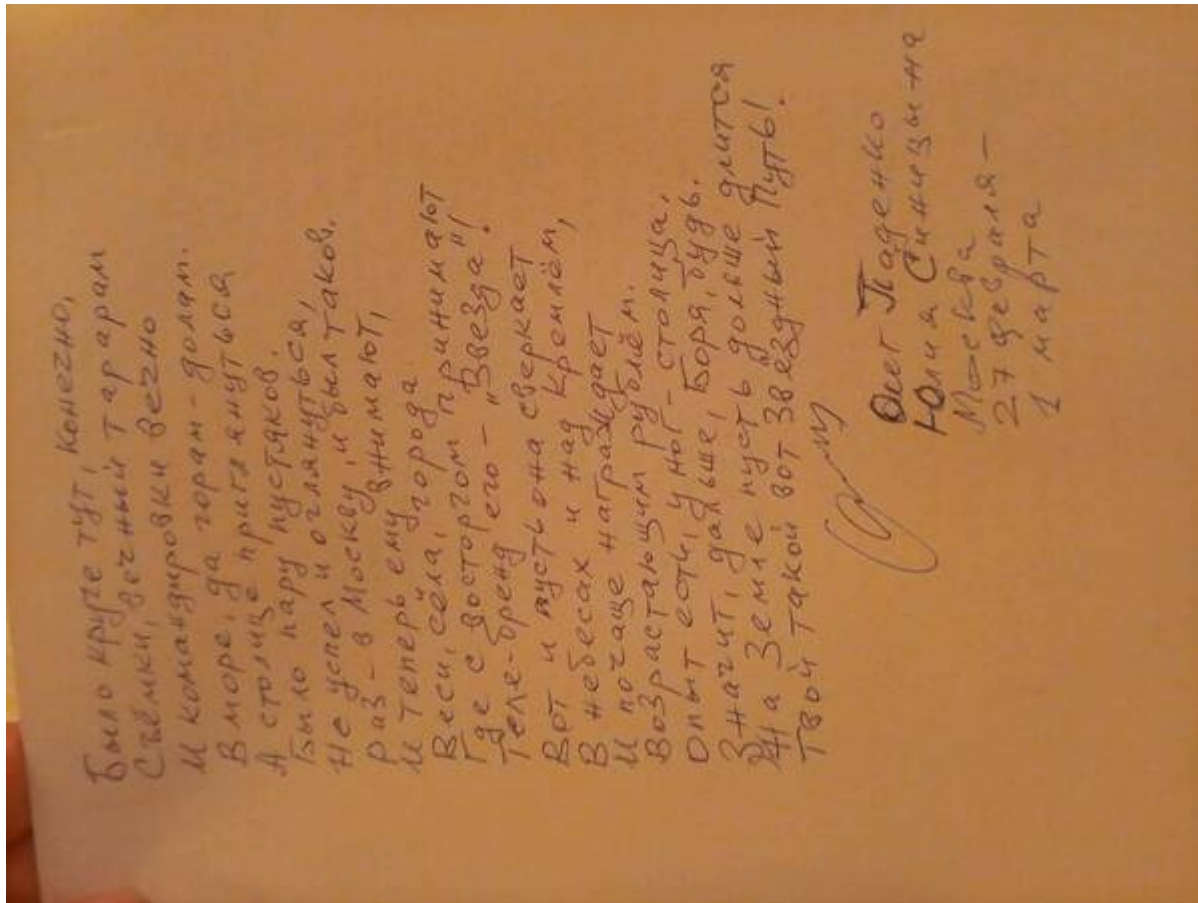 Было круче тут, конечно,
Съёмки, вечный тарарам
И командировки вечно
В море, да горам - долам.
А столице приглянуться
Было пару пустяков.
Не успел и оглянуться,
Раз - в Москву, и был таков.
И теперь ему внимают,
Веси, сёла, города
Где с восторгом принимают
Теле-бренд его - "Звезда"!
Вот и пусть она сверкает
В небесах и над Кремлём,
И почаще награждает
Возрастающим рублём.
Опыт есть, у ног - столица,
Значит, дальше, Боря, будь.
На Земле пусть дольше длится
Твой такой вот Звездный Путь!
Олег Паденко
Юлия Синицына
Москва
27 февраля -
1 марта